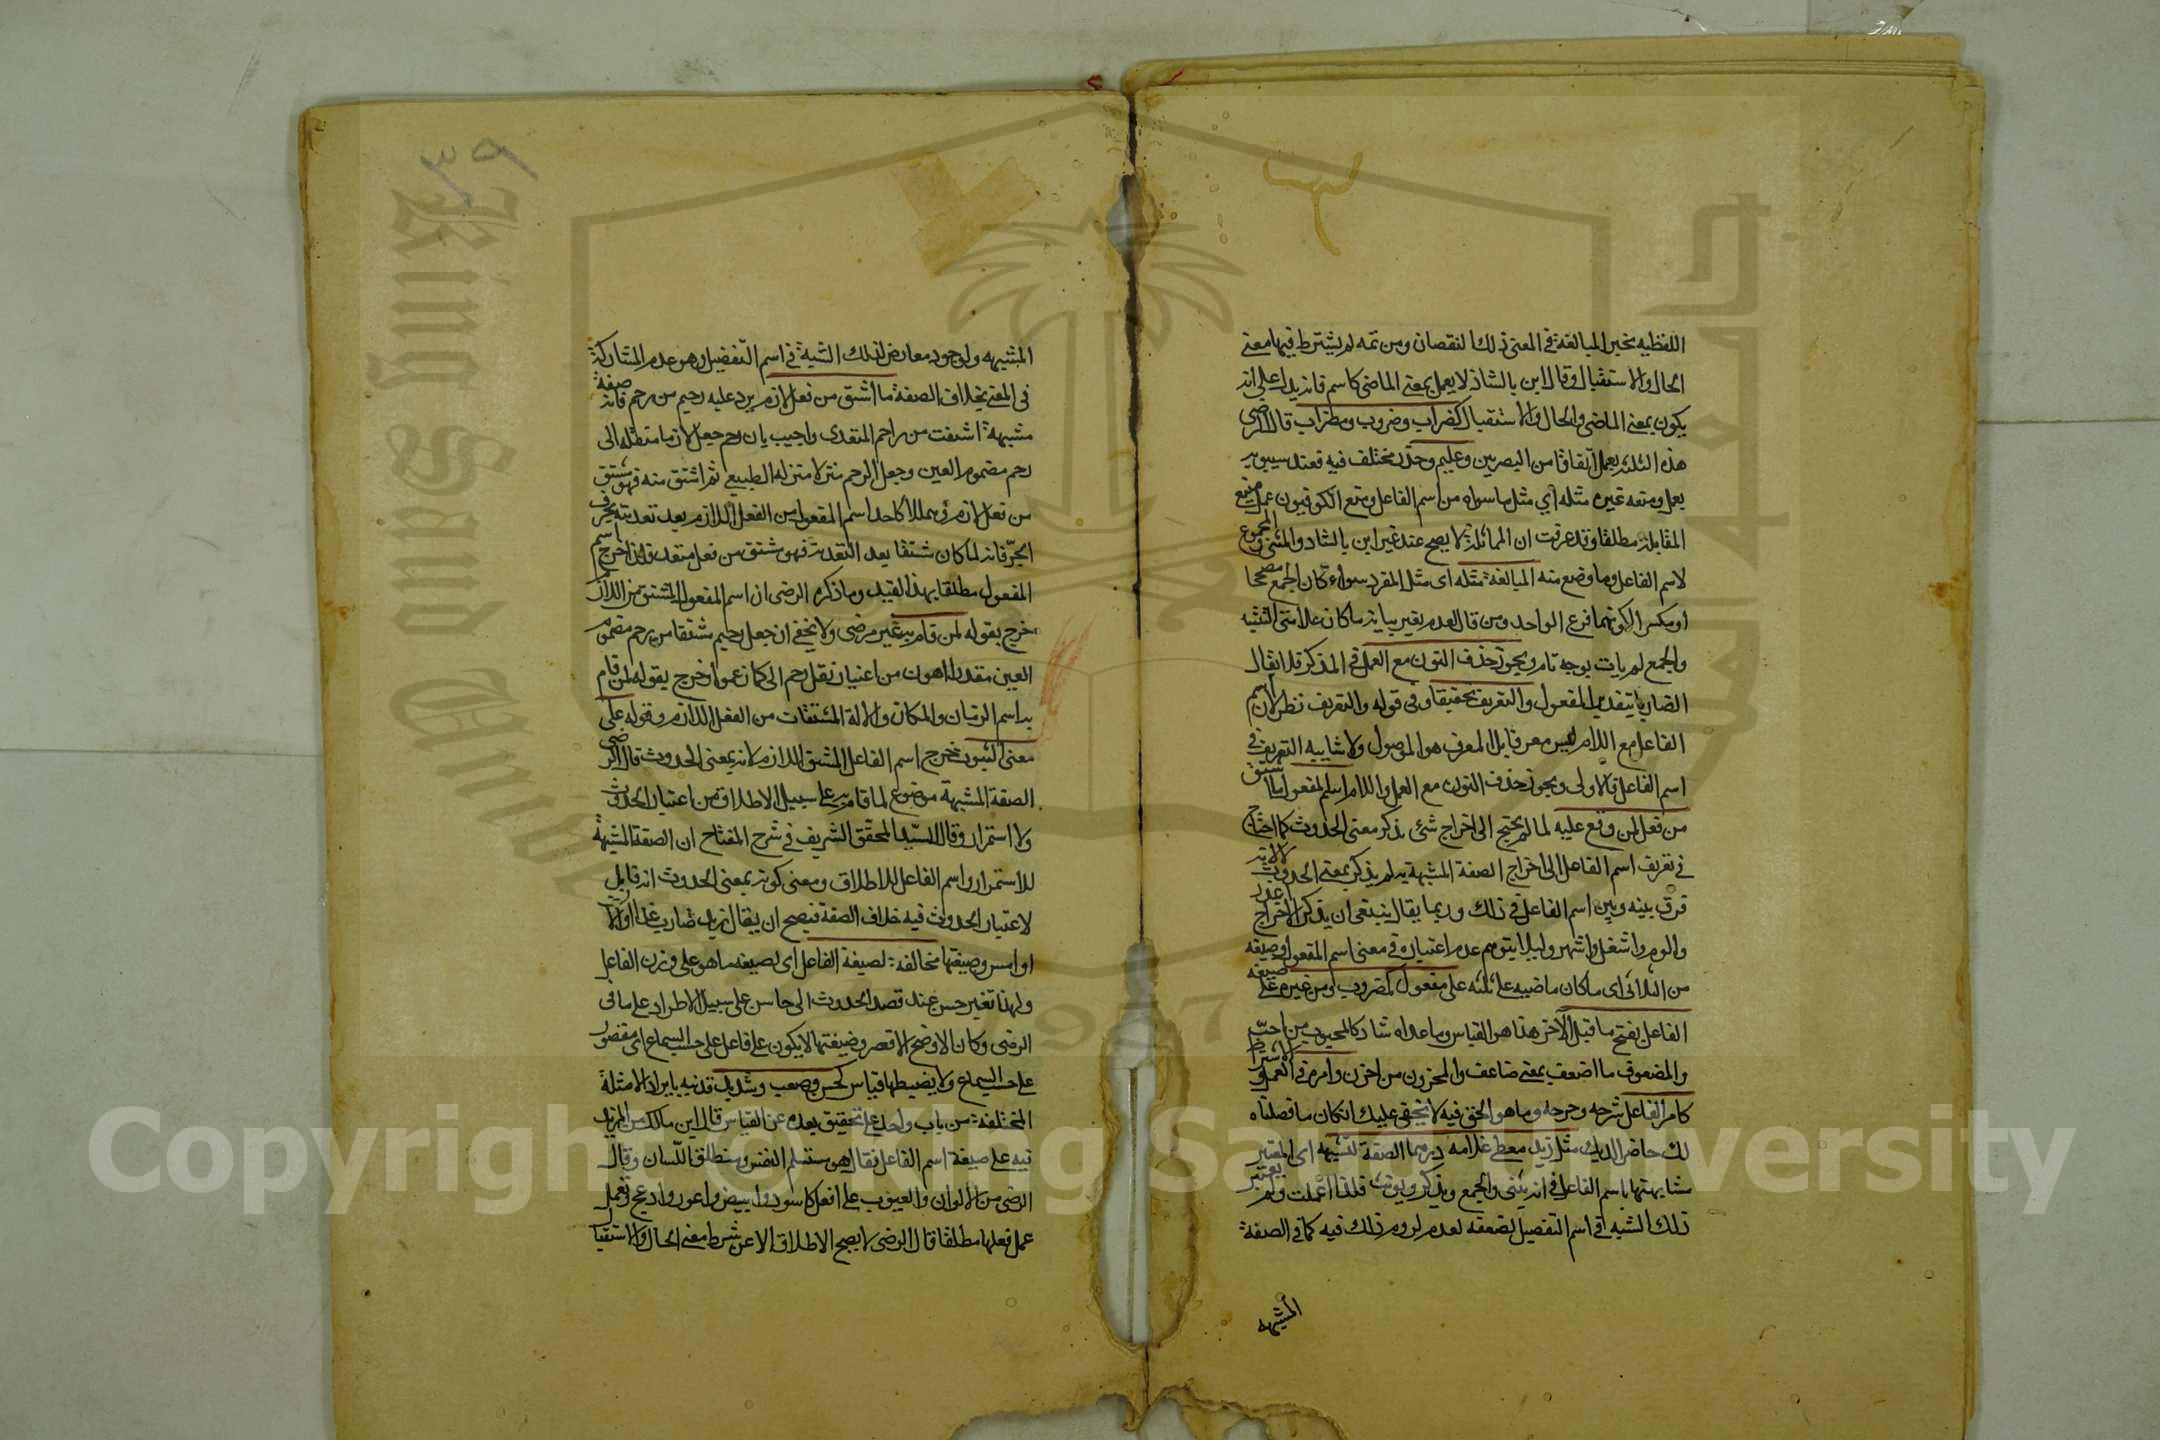 اللفظيه بخبر المبالغة في المعنى ذلك النقصان ومن ثمه لم يشترط فيها معنى
الحال والاستقبال وقال ابن بابشاذ لا يعمل بمعنى الماضى كاسم فانزيد على انه
يكون بمعنى الماضى والحال والاستقبال كضراب وضروب ومضراب قال الرضى
هذه الثلثة يعمل اتفاقا من البصريين وعليم وحذر مختلف فيه فعند سيبويه
يعل ومنعه غيره مثله اي مثل ما سواه من اسم الفاعل ومنع الكوفيون عمل صيغ
المقابلة مطلقا وقد عرفت ان المماثلة لا يصح عند غير ابن بابشاد والمثنى والمجموع
لاسم الفاعل وما وضع منه المبالغة مثله اى مثل المفرد سواء كان الجمع مصححا
او مكسرا لكونهما فرع الواحد ومن قال لعدم تغير بنائه ما كان علامتى التثنيه
والجمع لم يات بوجه تام ويجوز حذف النون مع العمل في المذكر فلا يقال
الضاربات بتقدير المفعول والتعريف تحقيقا وفى قوله والتعريف نظر لان لام
الفاعل مع اللام ليس معرفا بل المعرف هو الموصول ولا شايبه التعريف في
اسم الفاعل فالاولى ويجوز حذف النون مع العمل واللام اسلم المفعول ما اشتق
من فعل لمن وقع عليه لما لم يحتج الى اخراج شئ بذكر معنى الحدوث كما احتاج
في تعريف اسم الفاعل الى اخراج الصفة المشبهة به لم يذكر بمعنى الحدوث لانه لا
فرق بينه وبين اسم الفاعل في ذلك وربما يقال ينبغى ان يذكر لاخراج
والوم واشغل واشهر ولئلا يتوهم عدم اعتباره في معنى اسم المفعول وصيغه
من الثلاثى اى ما كان ماضيه على ثلثه على مفعول كمضروب ومن غيره على صيغه
الفاعل بفتح ما قبل الآخر هذا هو القياس وما عداه شاذ كالمحبوب من احبّ
والمضعوف ما اضعف بمعنى ضاعف والمحزون من احزن وامره في العمل والاشتراط
كامر الفاعل شرحه وجرحه وما هو الحق فيه لا يخفى عليك انكان ما فصلناه
لك حاضرا لديك مثل زيد معطى غلامه درهما الصفة المشبهه اى المعتبر
مشابهتها باسم الفاعل في انه يثنى والجمع ويذكر ويونث فلذا اعملت ولم يعتبر
ذلك الشبه في اسم التفضيل لضعفه لعدم لزوم ذلك فيه كما في الصفة
المشبهه
٣٩
المشبهه ولوجود معارض لذلك الشبه في اسم التفضيل وهو عدم المشاركة
فى المعنى بخلاف الصفة ما اشتق من فعل لازم يرد عليه رحيم من رحم فانه صفة
مشبهة اشتقت من راحم المتعدى واجيب بان رحم جعل لازما منقله الى
رحم مضموم العين وجعل الرحم منزلا منزله الطبيعي ثم اشتق منه فهو مشتق
من فعل لازم اسم المفعول من الفعل اللازم بعد تعديته بحرف
الجرّ فانه لما كان مشتقا بعد التعدية فهو مشتق من فعل متعد فلذا اخرج اسم
المفعول مطلقا بهذا القيد وما ذكره الرضى ان اسم المفعول المشتق من اللازم
خرج بقوله لمن قام به غير مرضى ولا يخفى ان جعل رحيم مشتقا من رحم مضموم
العين مقدرا اهون من اعتبار نقل رحم الى خرج بقوله لمن قام
به اسم الزمان والمكان والآلة المشتقات من الفعل اللازم وقوله على
معنى الثبوت يخرج اسم الفاعل المشتق اللازم لانه بمعنى الحدوث قال الرضى
الصفة المشبهة موضوع لما قام به على سبيل الاطلاق من اعتبار الحدوث
ولا استمرار وقال السيّد المحقّق الشريف في شرح المفتاح ان الصفة المشبهة
للاستمرار واسم الفاعل للاطلاق ومعنى كونه بمعنى الحدوث انه قابل
لاعتبار الحدوث فيه خلاف الصفة فيصح ان يقال زيد ضارب غدا اولا
او امس وصيغتها مخالفة لصيغة الفاعل اى لصيغه ما هو على وزن الفاعل
ولهذا تغير حسن عند قصد الحدوث الى حاسن على سبيل الاطراد على ما فى
الرضى وكان الاوضح الاقصر وصيغتها لا يكون على فاعل على حسب السماع اى مقصور
على حسب السماع ولا يضبطها قياس كحسن وصعب وشديد قد نبه بايراد الامثلة
المختلفة من باب واحد على تحقيق بعده عن القياس قال ابن مالك من المزيد
فيه على صيغة اسم الفاعل فقال هو مستسلم النفس ومنطلق اللّسان وقال
الرضى من الالوان والعيوب على افعل كاسود وابيض واعور وادعج وتعمل
عمل فعلها مطلقا قال الرضى لا يصح الاطلاق الا عن شرط معنى الحال والاستقبال
Copyright © King Saud University
King Saud University
1957